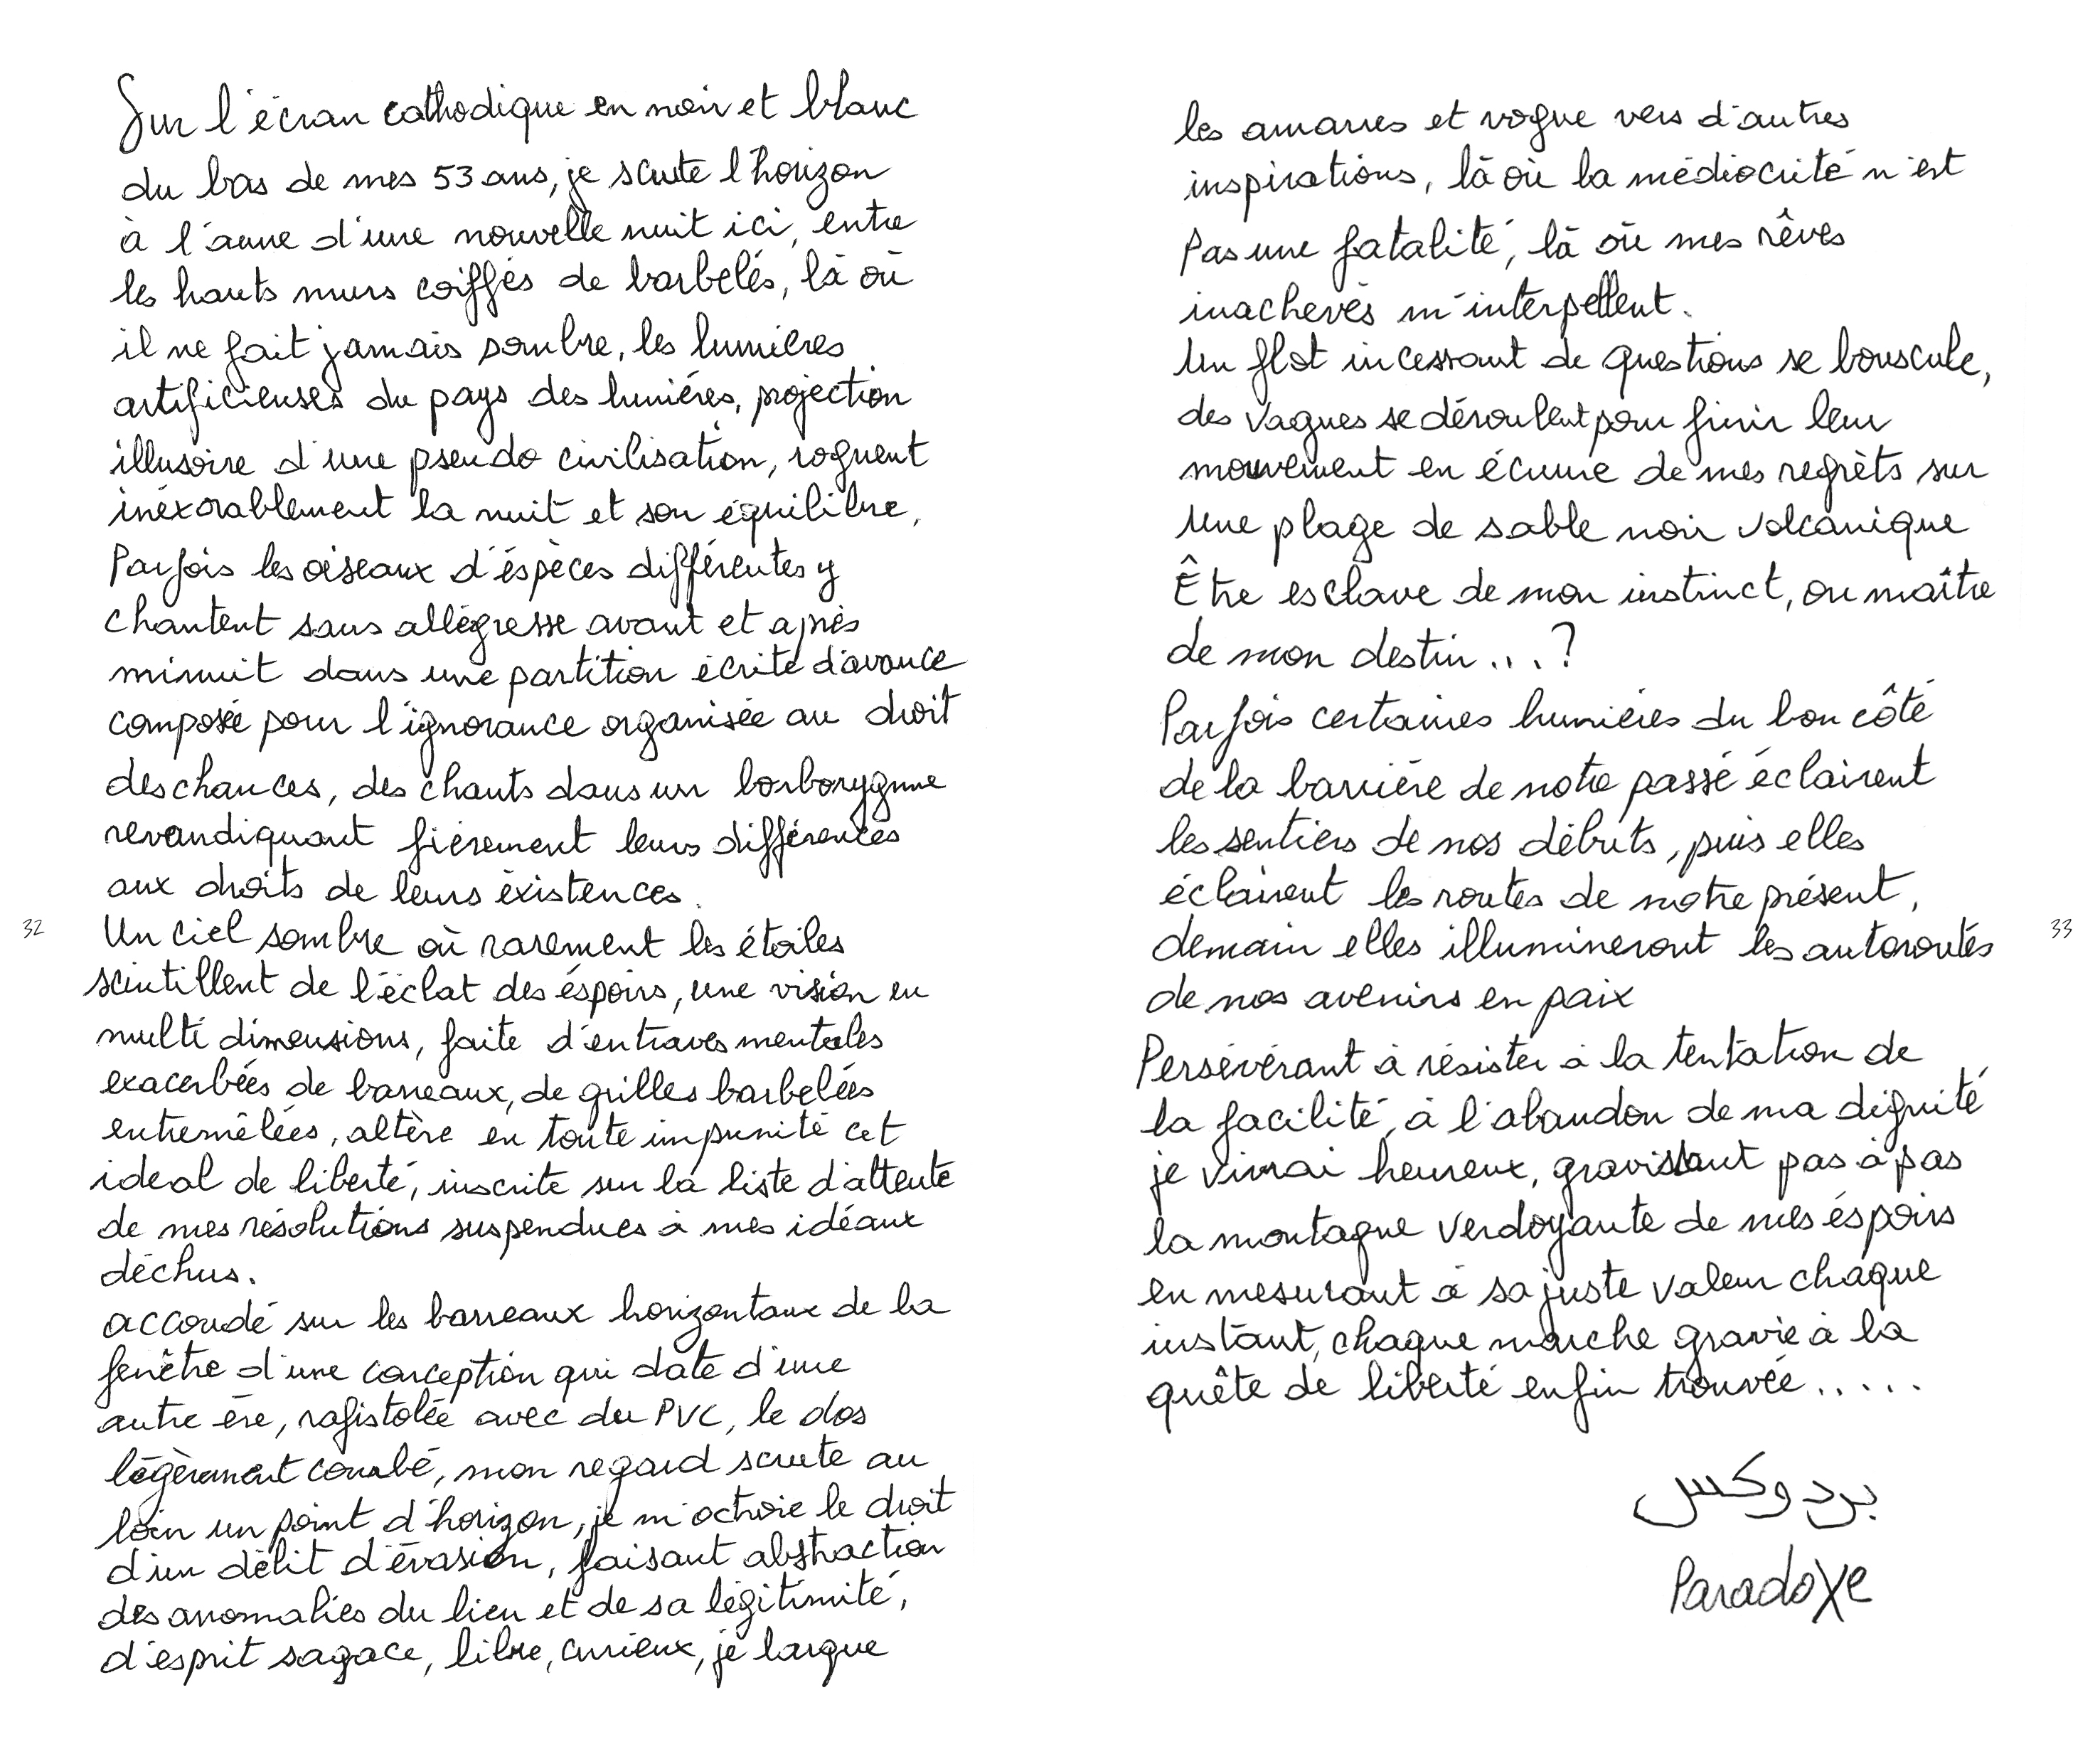 Sur l'écran cathodique en noir et blanc
du bas de mes 53 ans, je scrute l'horizon
à l'aune d'une nouvelle nuit ici, entre
les hauts murs coiffés de barbelés, là où
il ne fait jamais sombre, les lumières
artificieuses du pays des lumières, projection
illusoire d'une pseudo civilisation, rognent
inéxorablement la nuit et son équilibre,
Parfois les oiseaux d'éspèces différentes y
chantent sans allégresse avant et après
minuit dans une partition écrite d'avance
composée pour l'ignorance organisée au droit
des chances, des chants dans un borborygme
revandiquant fièrement leurs différences
aux droits de leurs éxistences.
32
Un ciel sombre où rarement les étoiles
scintillent de l'éclat des éspoirs, une vision en
multi dimensions, faite d'entraves mentales
exacerbées de barreaux, de grilles barbelées
entremêlées, altère en toute impunité cet
ideal de liberté, inscrite sur la liste d'attente
de mes résolutions suspendues à mes idéaux
déchus.
accoudé sur les barreaux horizontaux de la
fenêtre d'une conception qui date d'une
autre ère, rafistolée avec du PVC, le dos
légèrement courbé, mon regard scrute au
loin un point d'horizon, je m'octroie le droit
d'un délit d'évasion, faisant abstraction
des anomalies du lieu et de sa légitimité,
d'esprit sagace, libre, curieux, je largue
les amarres et vogue vers d'autres
inspirations, là où la médiocrité n'est
Pas une fatalité, là où mes rêves
inachevés m'interpellent.
Un flot incessant de questions se bouscule,
des vagues se déroulent pour finir leur
mouvement en écume de mes regrèts sur
une plage de sable noir volcanique
Être esclave de mon instinct, ou maître
de mon destin...?
Parfois certaines lumières du bon côté
de la barrière de notre passé éclairent
les sentiers de nos débuts, puis elles
éclairent les routes de notre présent,
demain elles illumineront les autoroutes
33
de nos avenirs en paix
Persévérant à résister à la tentation de
la facilité, à l'abandon de ma dignité
je vivrai heureux, gravissant pas à pas
la montagne verdoyante de mes éspoirs
en mesurant à sa juste valeur chaque
instant, chaque marche gravie à la
quête de liberté enfin trouvée.....
بردوكس
ParadoXe